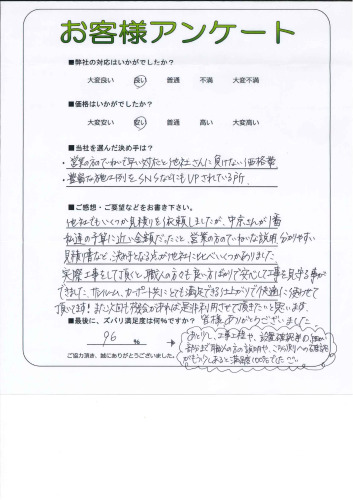 お客様アンケート
■弊社の対応はいかがでしたか？
大変良い 良い 普通 不満 大変不満
■価格はいかがでしたか？
大変安い 安い 普通 高い 大変高い
■当社を選んだ決め手は？
・営業の方のていねいで早い対応と他社さんに負けない価格費
・豊富な施工例をSNSなどにもUPされている所。
■ご感想・ご要望などをお書き下さい。
他社でもいくつか見積りを依頼しましたが、中京さんが1番
私達の予算に近い金額だったこと、営業の方のていねいな説明、分かりやすい
見積書など、決め手となる点が他社に比べいくつかありました。
実際工事をして頂くと、職人の方々も良い方ばかりで安心して工事を見守る事が
できました。カーポート共にとても満足できる仕上がりで快適に使わせて
頂いてます！また次回も機会があれば是非利用させて頂きたいと思います。
皆様ありがとうございました
■最後に、ズバリ満足度は何％ですか？
96 ％
ご協力頂き、誠にありがとうございました。
工事工程や、設置確認等の
部分まで職人の方の説明や、こちら側への確認
がもう少しあると満足度100％でした